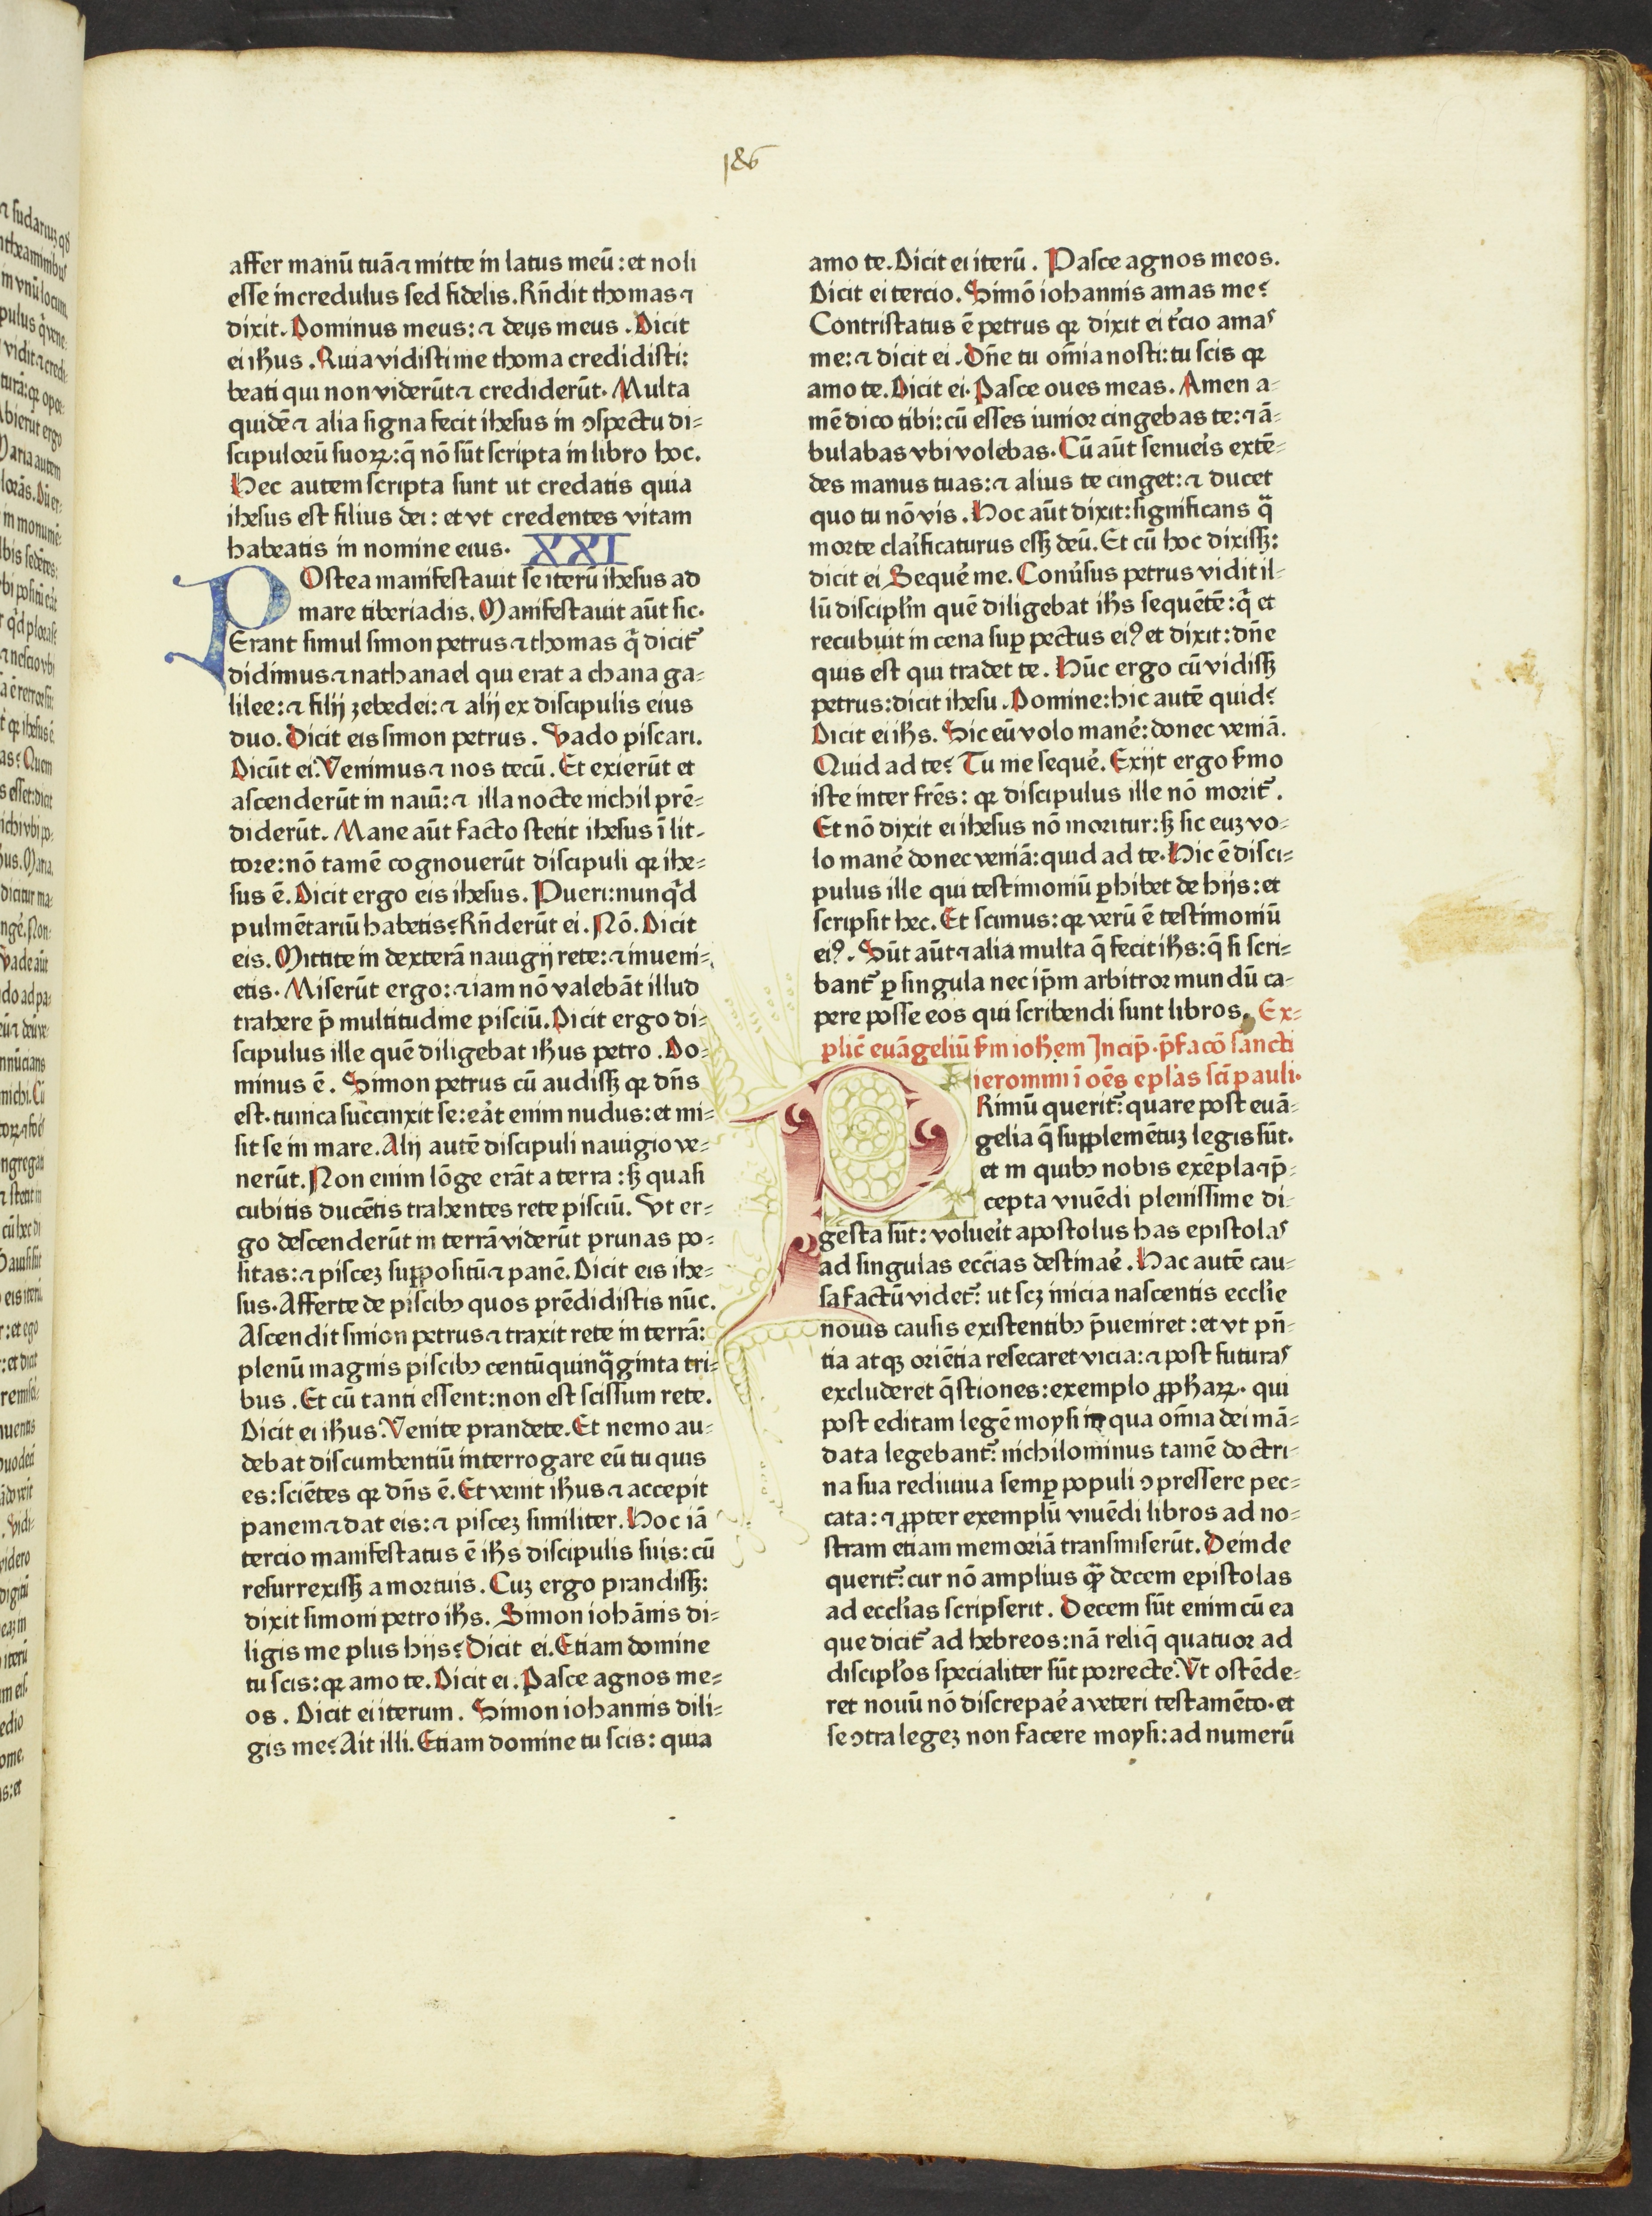 186
affer manū tuā ⁊ mitte in latus meū : et noli
esse incredulus sed fidelis. Rn̄dit thomas ⁊
dixit. Dominus meus: ⁊ deus meus . Dicit
ei ih̄us . Ruia vidisti me thoma credidisti:
beati qui non viderūt ⁊ crediderūt. Multa
quidē ⁊ alia signa fecit ihesus in ↄspectu di=
scipuloꝛū suoꝝ: q̄ nō sūt scripta in libro hoc.
Hec autem scripta sunt ut credatis quia
ihesus est filius dei : et vt credentes vitam
habeatis in nomine eius. XXI
POstea manifestauit se iterū ihesus ad
mare tiberiadis. Manifestauit aūt sic.
Erant simul simon petrus ⁊ thomas q̄ dicit᷑
didimus ⁊ nathanael qui erat a chana ga=
lilee: ⁊ filij zebedei: ⁊ alij ex discipulis eius
duo. Dicit eis simon petrus . Vado piscari.
Dicūt ei. Venimus ⁊ nos tecū . Et exierūt et
ascenderūt in nauī: ⁊ illa nocte nichil prē=
diderūt. Mane aūt facto stetit ihesus ī lit-
tore: nō tamē cognouerūt discipuli qꝛ ihe=
sus ē. Dicit ergo eis ihesus . Pueri: nunq̄d
pulmētariū habetis? Rn̄derūt ei . Nō. Dicit
eis. Mittite in dexterā nauigij rete: ⁊ inueni=
etis. Miserūt ergo: ⁊ iam nō valebāt illud
trahere p̄ multitudine pisciū. Dicit ergo di=
scipulus ille quē diligebat ih̄us petro . Do=
minus ē . Simon petrus cū audissꝫ qꝛ dn̄s
est. tunica succinxit se: eāt enim nudus: et mi=
sit se in mare. Alij autē discipuli nauigio ve=
nerūt. Non enim lōge erāt a terra : sꝫ quasi
cubitis ducētis trahentes rete pisciū. Vt er=
go descenderūt in terrā viderūt prunas po=
sitas: ⁊ piscez suꝑpositū ⁊ panē. Dicit eis ihe=
sus. Afferte de piscibꝫ quos prēdidistis nūc.
Ascendit simon petrus ⁊ traxit rete in terrā:
plenū magnis piscibꝫ centū quinq̄ginta tri=
bus . Et cū tanti essent: non est scissum rete.
Dicit ei ih̄us. Venite prandete. Et nemo au=
debat discumbentiū interrogare eū tu quis
es: sciētes qꝛ dn̄s ē. Et venit ih̄us ⁊ accepit
panem ⁊ dat eis: ⁊ piscez similiter. Hoc iā
tercio manifestatus ē ih̄s discipulis suis: cū
resurrexissꝫ a mortuis . Cuz ergo prandissꝫ:
dixit simoni petro ih̄s. Simon iohānis di=
ligis me plus hijs? Dicit ei. Etiam domine
tu scis: qꝛ amo te. Dicit ei . Pasce agnos me=
os . Dicit ei iterum . Simon iohannis dili=
gis me? Ait illi. Etiam domine tu scis: quia
amo te. Dicit ei iterū . Pasce agnos meos.
Dicit ei tercio. Simō iohannis amas me?
Contristatus ē petrus qꝛ dixit ei t̄cio amas
me: ⁊ dicit ei . Dn̄e tu om̄ia nosti: tu scis qꝛ
amo te. Dicit ei. Pasce oues meas. Amen a=
mē dico tibi: cū esses iunioꝛ cingebas te: ⁊ ā=
bulabas vbi volebas. Cū aūt senueīs extē=
des manus tuas: ⁊ alius te cinget: ⁊ ducet
quo tu nō vis . Hoc aūt dixit: significans q̄
morte claīficaturus essꝫ deū. Et cū hoc dixissꝫ:
dicit ei Sequē me. Conūsus petrus vidit il=
lū discipl̄m quē diligebat ih̄s sequētē: q̄ et
recubuit in cena suꝑ pectus eiꝰ et dixit: dn̄e
quis est qui tradet te . Hūc ergo cū vidissꝫ
petrus: dicit ihesu . Domine: hic autē quid?
Dicit ei ih̄s. Sic eū volo manē: donec veniā.
Quid ad te? Tu me sequē. Exijt ergo s̄mo
iste inter fr̄es: qꝛ discipulus ille nō morit᷑.
Et nō dixit ei ihesus nō moritur: sꝫ sic euz vo=
lo manē donec veniā: quid ad te. Hic ē disci=
pulus ille qui testimoniū ꝑhibet de hijs: et
scripsit hec. Et scimus: qꝛ verū ē testimoniū
eiꝰ. Sūt aūt ⁊ alia multa q̄ fecit ih̄s: q̄ si scri=
bant᷑ ꝑ singula nec ip̄m arbitror mundū ca=
pere posse eos qui scribendi sunt libros. Ex=
plic̄ euāgeliū s̄m ioh̄em Incip̄. p̄facō sancti
ieronimi ī oēs epl̄as sc̄i pauli.
PRimū querit᷑: quare post euā=
gelia q̄ suꝑplemētuz legis sūt.
et in quibꝫ nobis exēpla ⁊ p̄=
cepta viuēdi plenissime di=
gesta sūt: volueīt apostolus has epistolas
ad singulas ecc̄ias destinaē. Hac autē cau=
sa factū videt᷑: ut scꝫ inicia nascentis eccl̄ie
nouis causis existentibꝫ p̄ueniret : et vt pn̄=
tia atqꝫ oriētia resecaret vicia: ⁊ post futuras
excluderet q̄stiones: exemplo ꝓph̄aꝝ. qui
post editam legē moysi in qua om̄ia dei mā=
data legebant᷑: nichilominus tamē doctri=
na sua rediuiua semꝑ populi ↄpressere pec=
cata: ⁊ ꝓpter exemplū viuēdi libros ad no=
stram etiam memoriā transmiserūt. Deinde
querit᷑: cur nō amplius q̄ꝫ decem epistolas
ad eccl̄ias scripserit . Decem sūt enim cū ea
que dicit᷑ ad hebreos: nā reliq̄ quatuor ad
discipl̄os specialiter sūt porrecte. Vt ostēde=
ret nouū nō discrepaē a veteri testamēto. et
se ↄtra legez non facere moysi: ad numerū